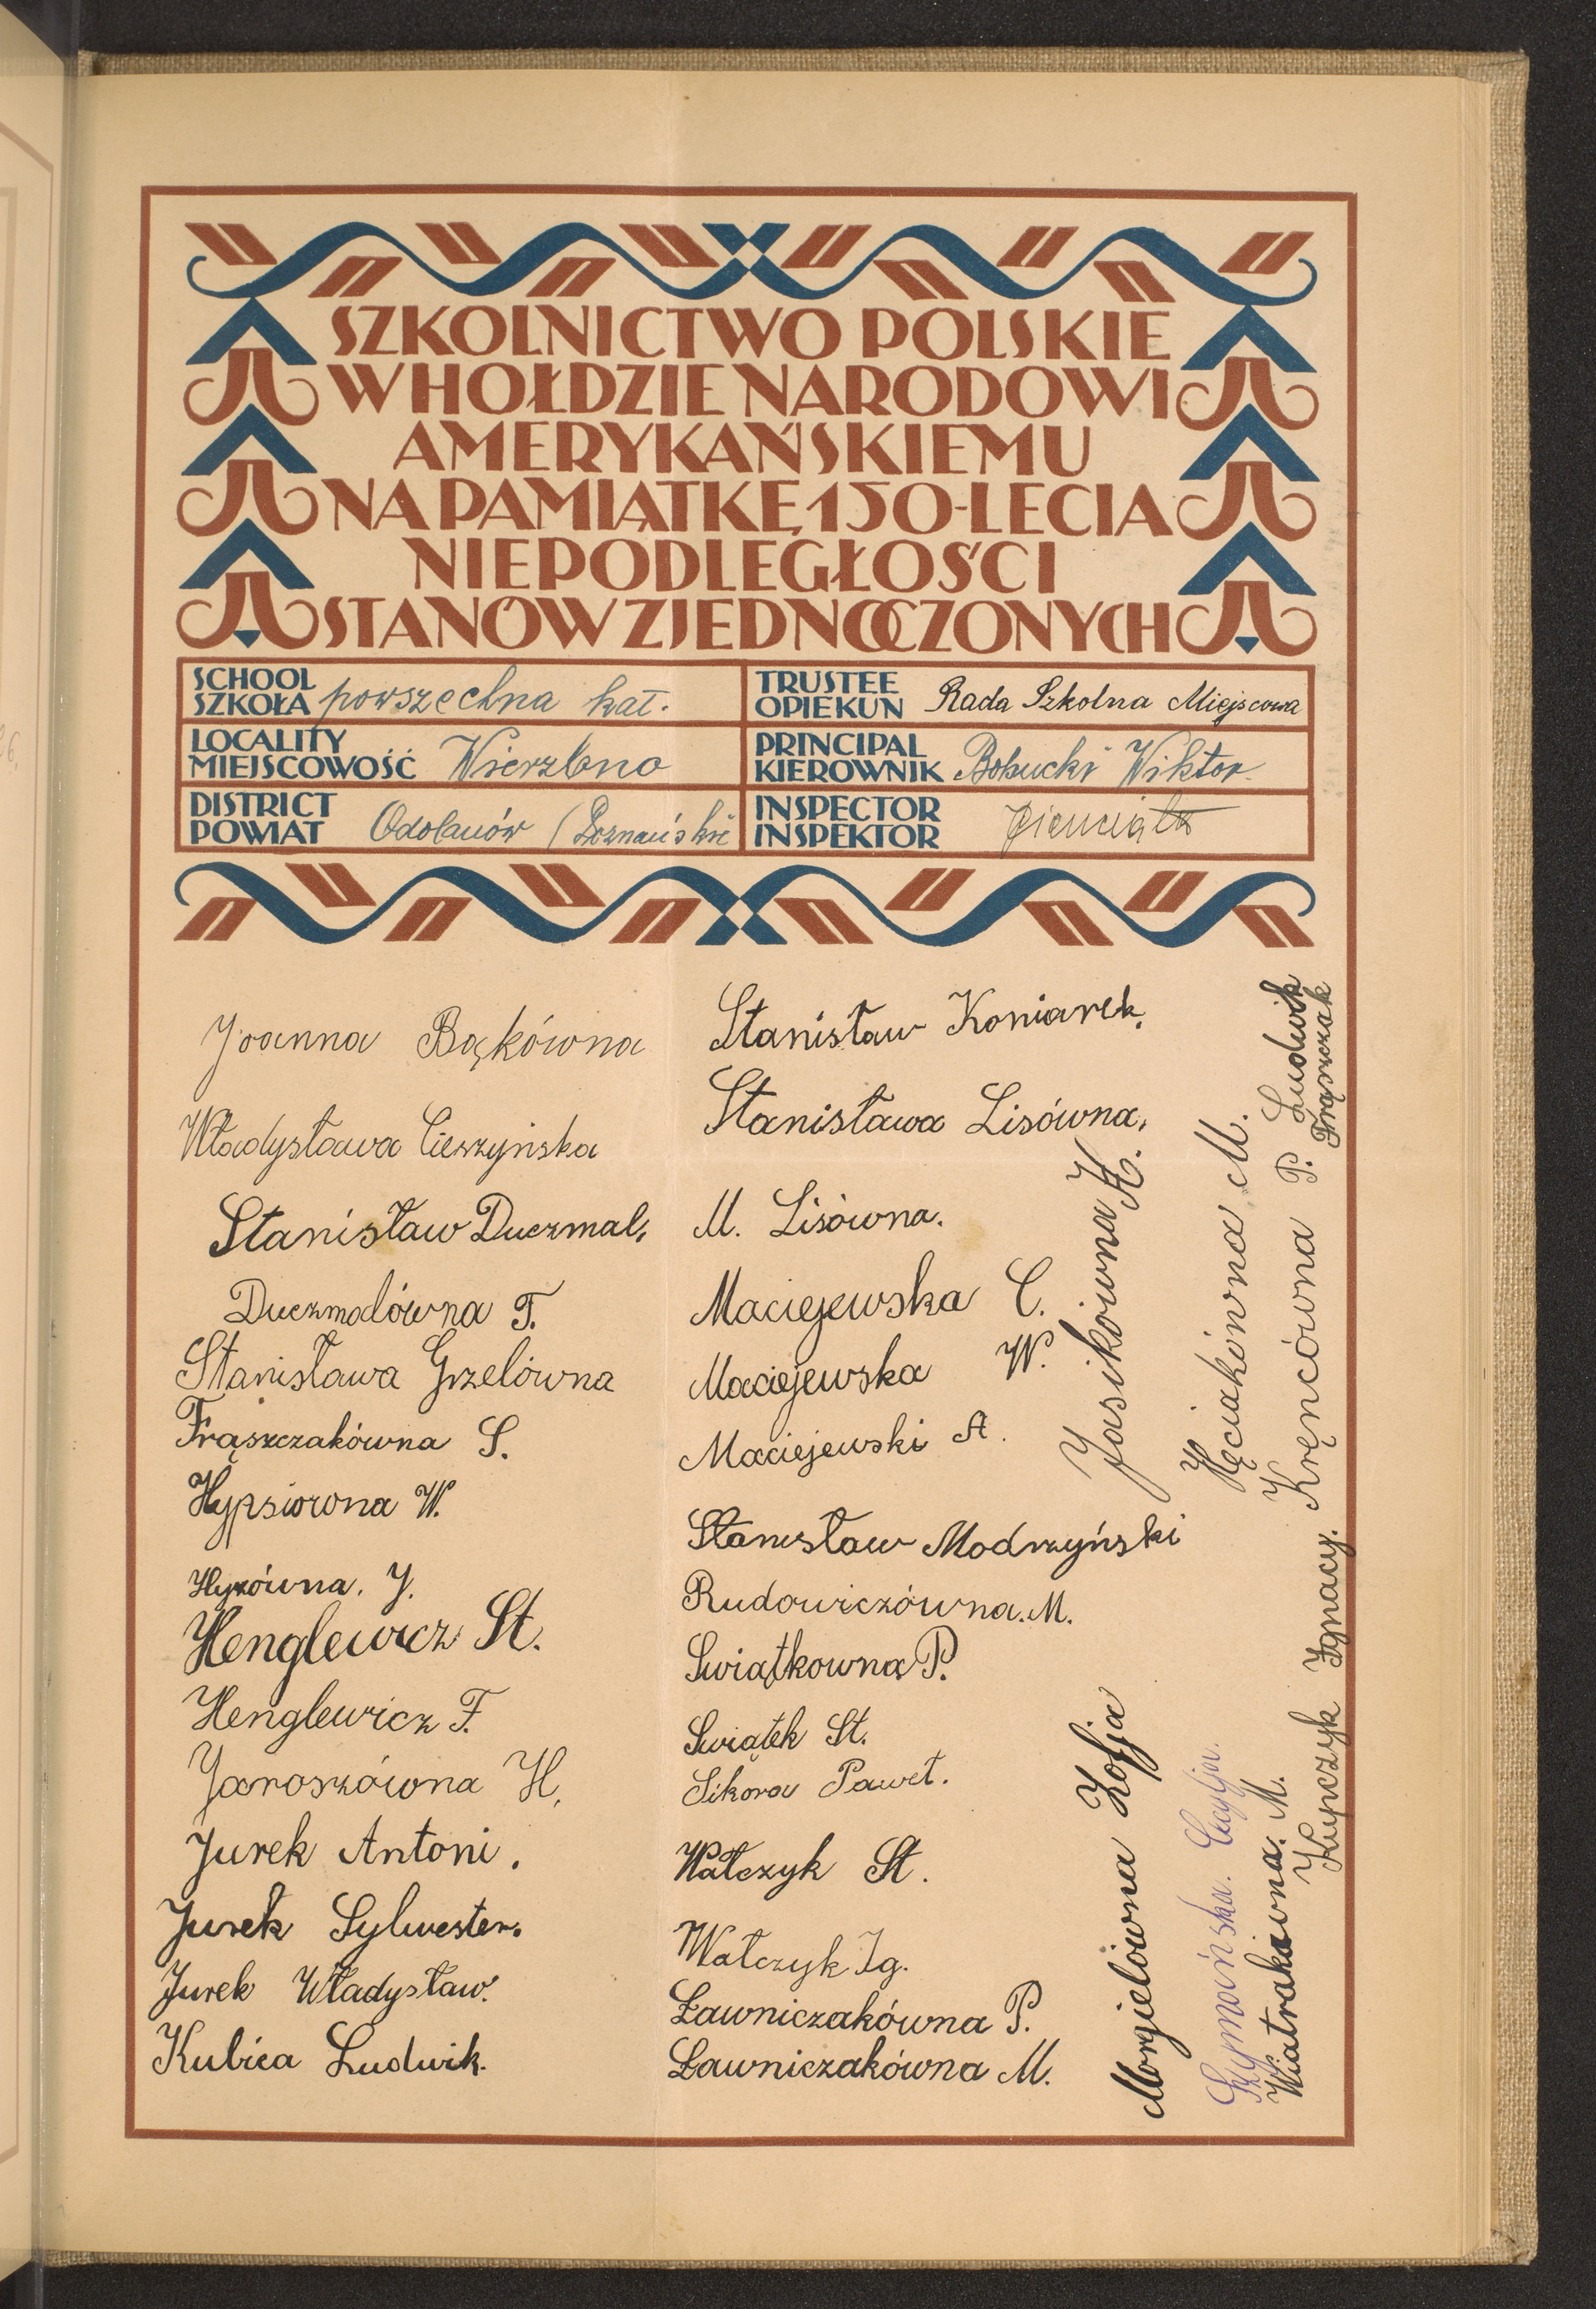 SZKOLNICTWO POLSKIE
W HOŁDZIE NARODOWI
AMERYKAŃSKIEMU
NA PAMIĄTKĘ 150-LECIA
NIEPODLEGŁOŚCI
STANÓW ZJEDNOCZONYCH
SCHOOL
SZKOŁA powszechna kat.
TRUSTEE
OPIEKUN Rada Szkolna Miejscowa
LOCALITY
MIEJSCOWOŚĆ Wierzbno
PRINCIPAL
KIEROWNIK Bobucki Wiktor
DISTRICT
POWIAT Odolanów (Poznański
INSPECTOR
INSPEKTOR
Joanna Bąkówna
Władysława Cieszyńska
Stanisław Duczmal,
Duczmalówna F.
Stanisława Grzelówna
Frąszczakówna S.
Hypsiorona W.
Hyzówna. J.
Henglewicz St.
Henglewicz F.
Jaroszówna H,
Jurek Antoni.
Jurek Sylwester.
Jurek Władysław.
Kubica Ludwik.
Stanisław Koniarek,
Stanisława Lisówna,
M. Lisówna.
Maciejewska C.
Maciejewska W.
Maciejewski A.
Stanisław Modrzyński
Rudowiczówna. M.
Swiątkowna P.
Swiątek St.
Sikora Paweł.
Wałczyk St.
Wałczyk Ig.
Ławniczakówna P.
Ławniczakówna M.
Jasikówna K.
Morgielówna Zofja
Hęciakówna M.
Szymańska. Cecylja.
Kręncówna P.
Wiatrakówna. M.
Ludwik
Frąszczak
Kupczyk Ignacy.